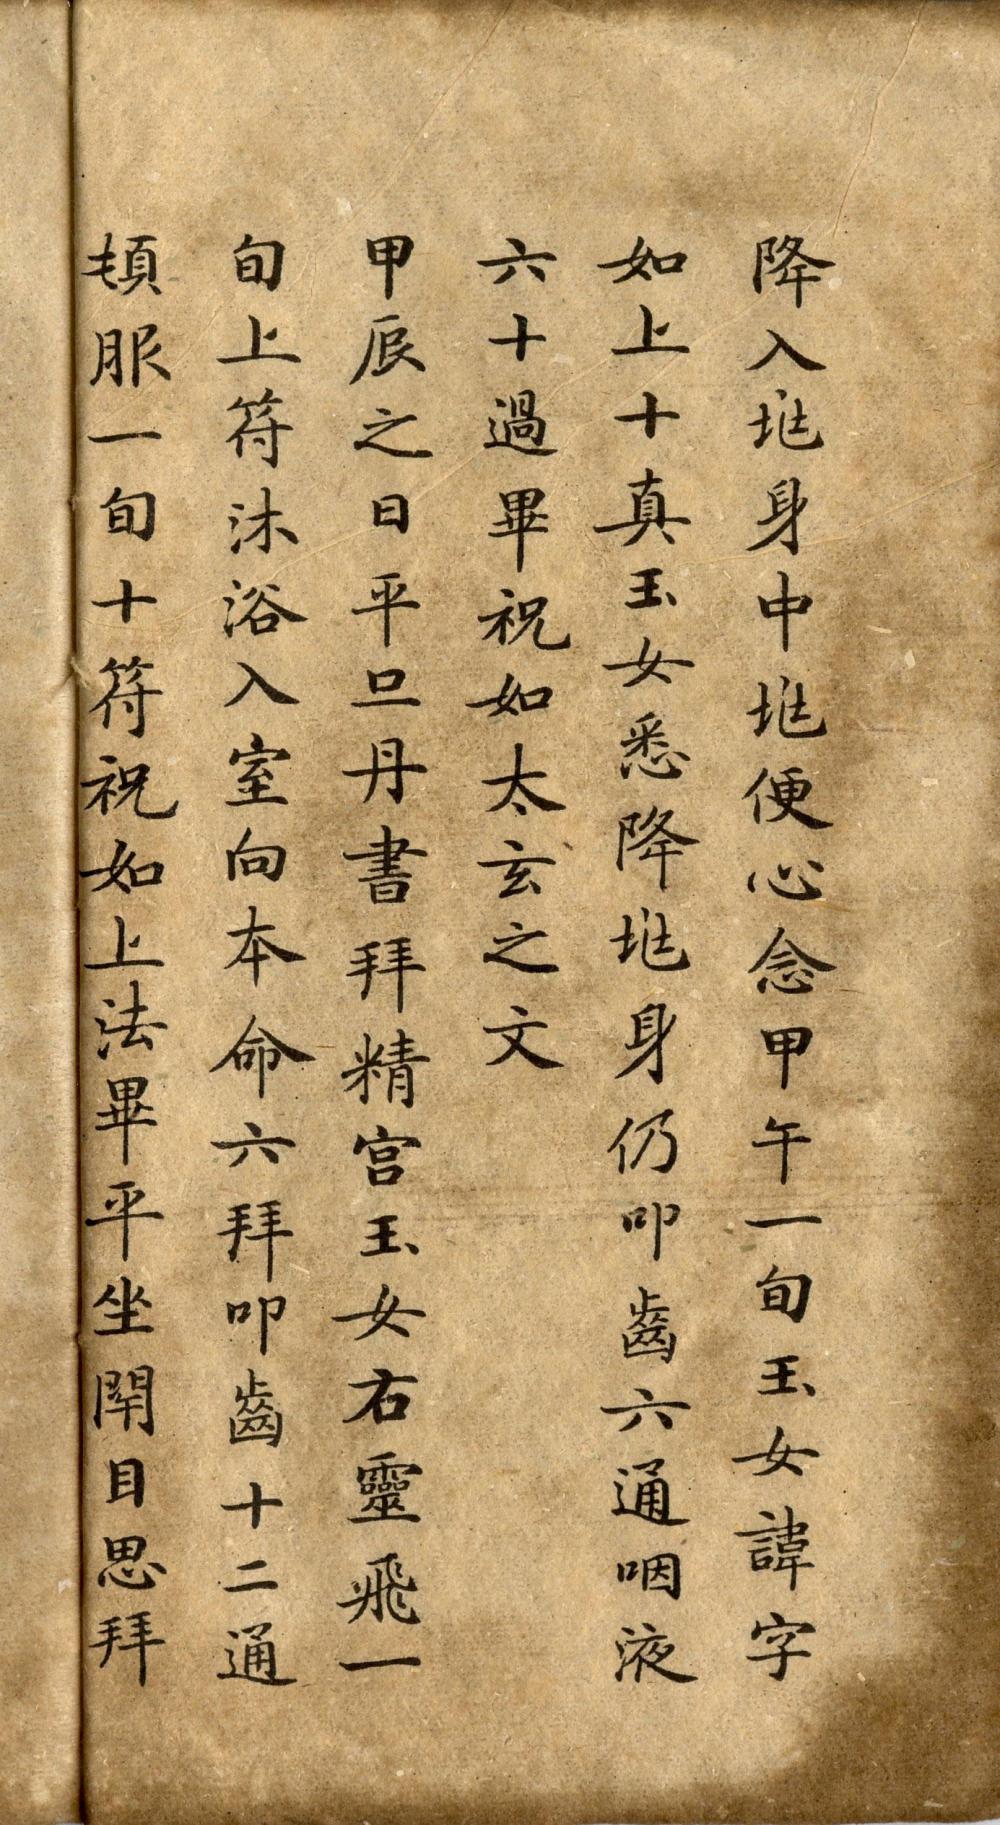 降入垗身中垗便心念甲午一旬玉女諱字
如上十真玉女悉降垗身仍叩齒六通咽液
六十過畢祝如太玄之文
甲辰之日平旦丹書拜精宮玉女右靈飛一
旬上符沐浴入室向本命六拜叩齒十二通
頓服一旬十符祝如上法畢平坐閇目思拜